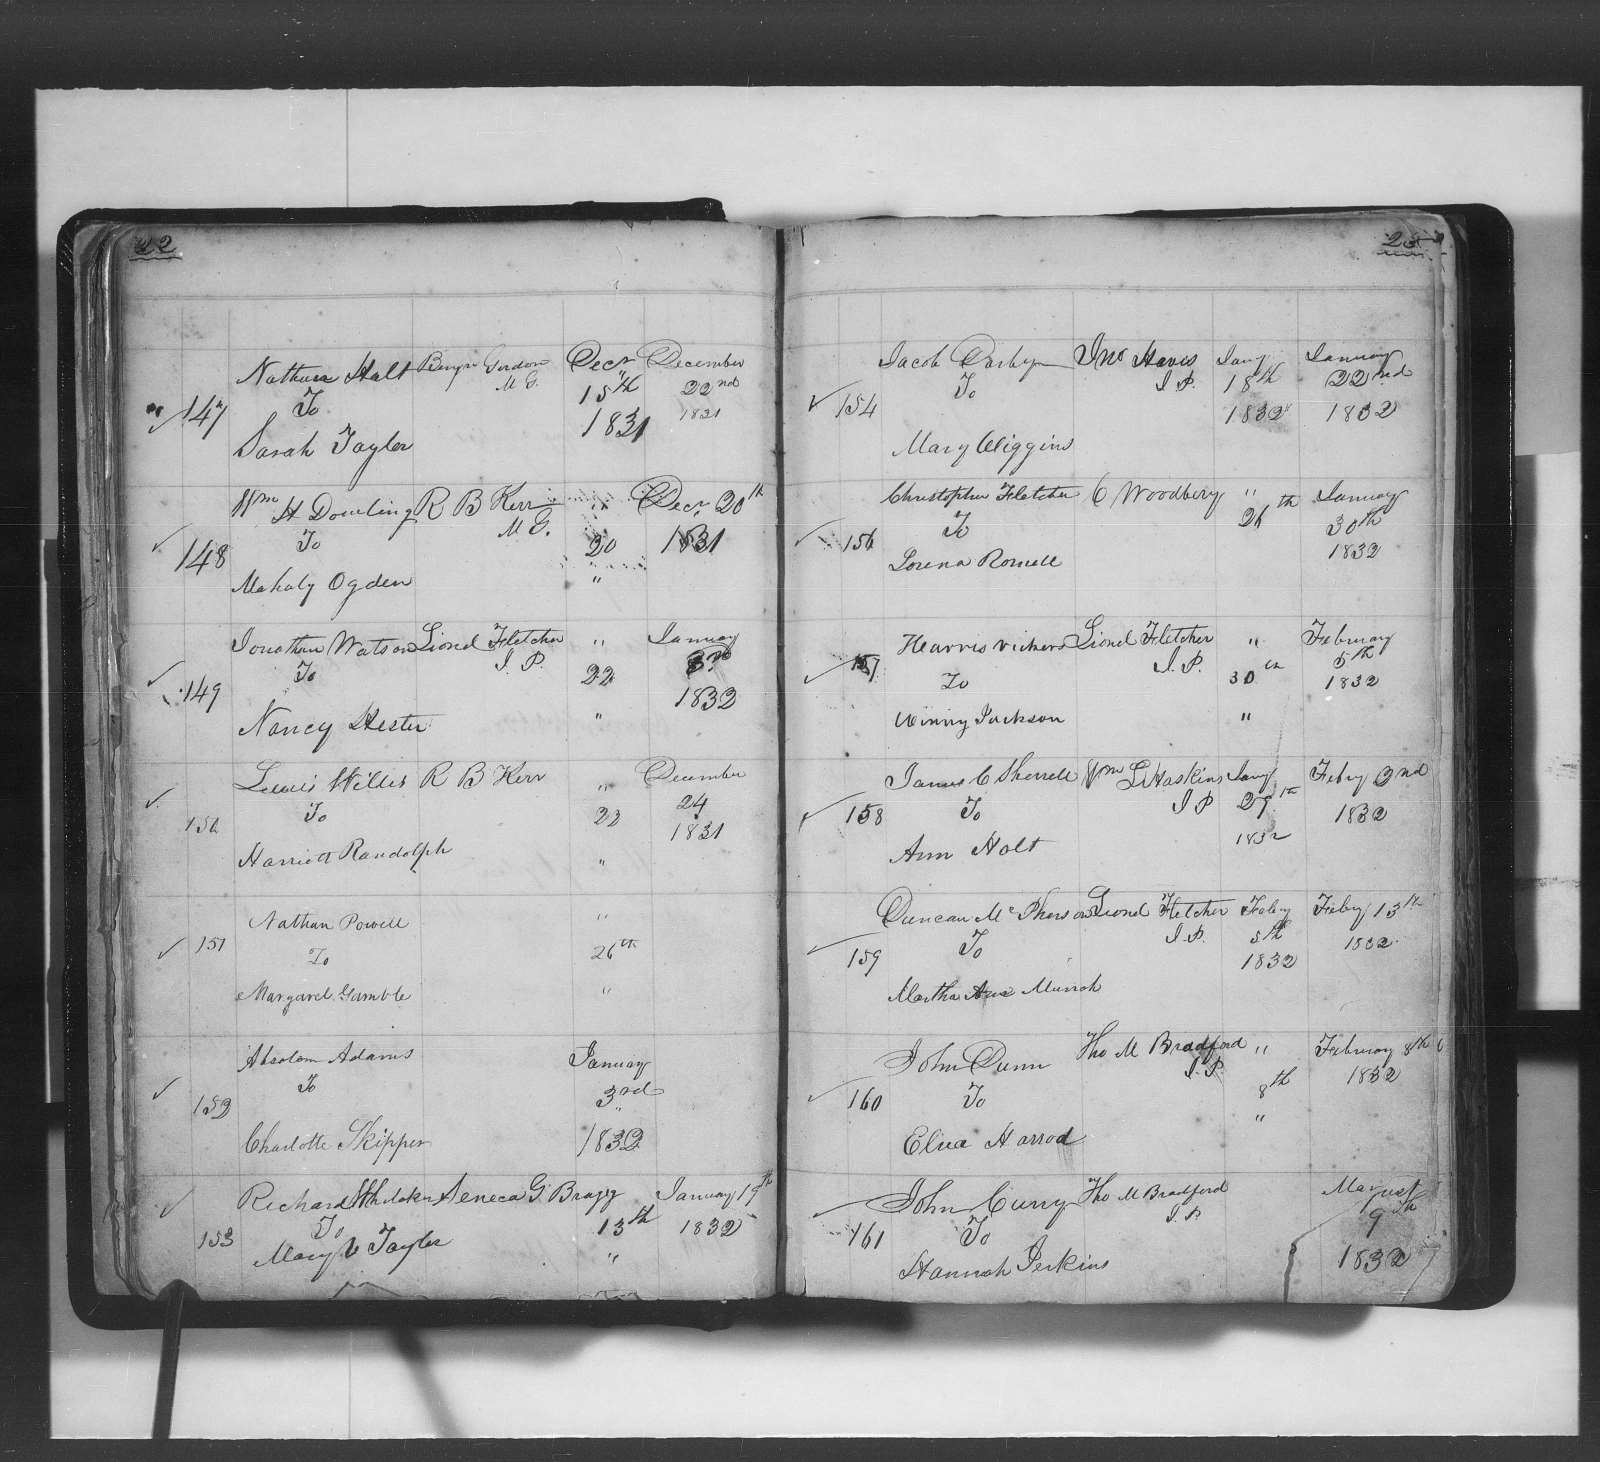 22
147 Nathan Holt Benjn Gordon Decr December
To M G. 15th 22nd
1831 1831
Sarah Tayler
148 Wm H Dowling R B Kerr " Decr 20th
To M G. 20 1831
Mahaly Ogden "
149 Jonathan Watson Lionel Fletcher " January
To J. P. 22 3rd
1832
Nancy Hester "
150 Lewis Willis R B Kerr " December
To 22 24
1831
Harriett Randolph "
151 Nathan Powell "
To 26th
Margaret Gamble "
152 Absolom Adams January
To 3rd
Charlotte Skipper 1832
153 Richard Whitaker Seneca G. Bragg January 19th
To 13th 1832
Mary V Tayler "
23
154 Jacob Darbyn Jno Havis Jany January
To J P. 18th 22nd
1832 1832
Mary Wiggins
156 Christopher Fletcher C Woodbery " January
To 26th 30th
1832
Lorena Rowell
157 Harris Vickers Lionel Fletcher " February
To J. P. 30th 5th
1832
Winny Jackson "
158 James C Sherrell Wm L Haskins Jany Feby 2nd
To J P 29th 1832
Ann Holt 1832
159 Duncan McPherson Lionel Fletcher Feby Feby 13th
To J P. 5th 1832
1832
Martha Ann
160 John Dunn Tho M Bradford " February 8th
To J. P. 8th 1832
Eliza Harrod "
161 John Curry Tho M Bradford
To J. P. 9th
1832
Hannah Perkins